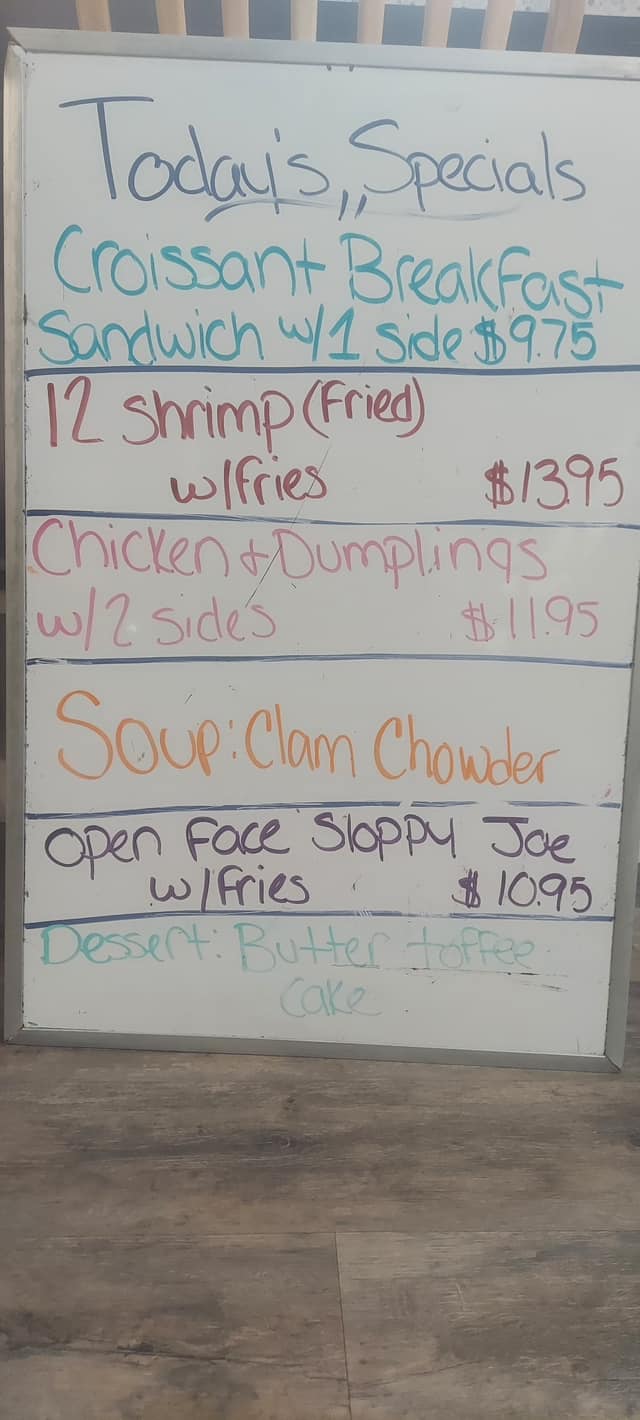 Today's,, Specials
Croissant Breakfast
Sandwich w/1 side $9.75
12 Shrimp (Fried)
w/Fries $13.95
Chicken & Dumplings
w/2 sides $11.95
Soup: Clam Chowder
open Face Sloppy Joe
w/Fries $10.95
Dessert: Butter toffee
Cake